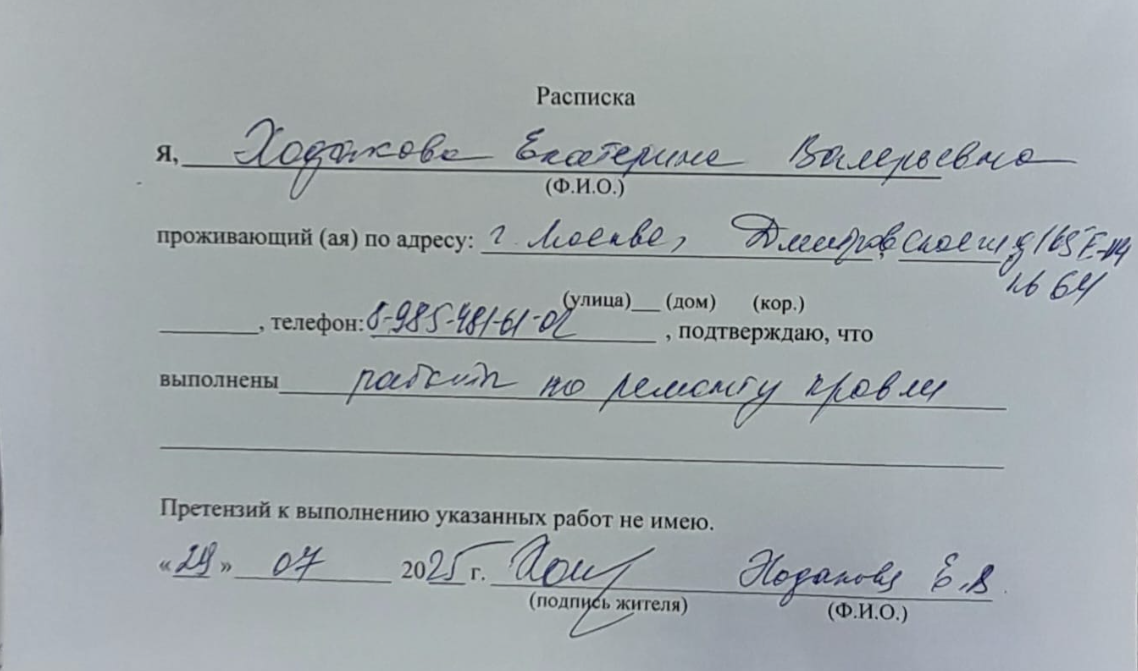 Расписка
Я, Ходакова Екатерина Валерьевна
(Ф.И.О.)
проживающий (ая) по адресу: г. Москва, Дмитровское ш д 165 Е
64
(улица)__ (дом) (кор.)
________, телефон: 8-985-481-61-02 , подтверждаю, что
выполнены работы по ремонту кровли
Претензий к выполнению указанных работ не имею.
«29» 07 2025 г. Ходакова Е.В.
(подпись жителя) (Ф.И.О.)